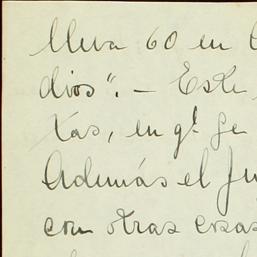 lleva 60 en
dios". - Este
tas, en gl. Ge
Además el Ju
con otras cosas